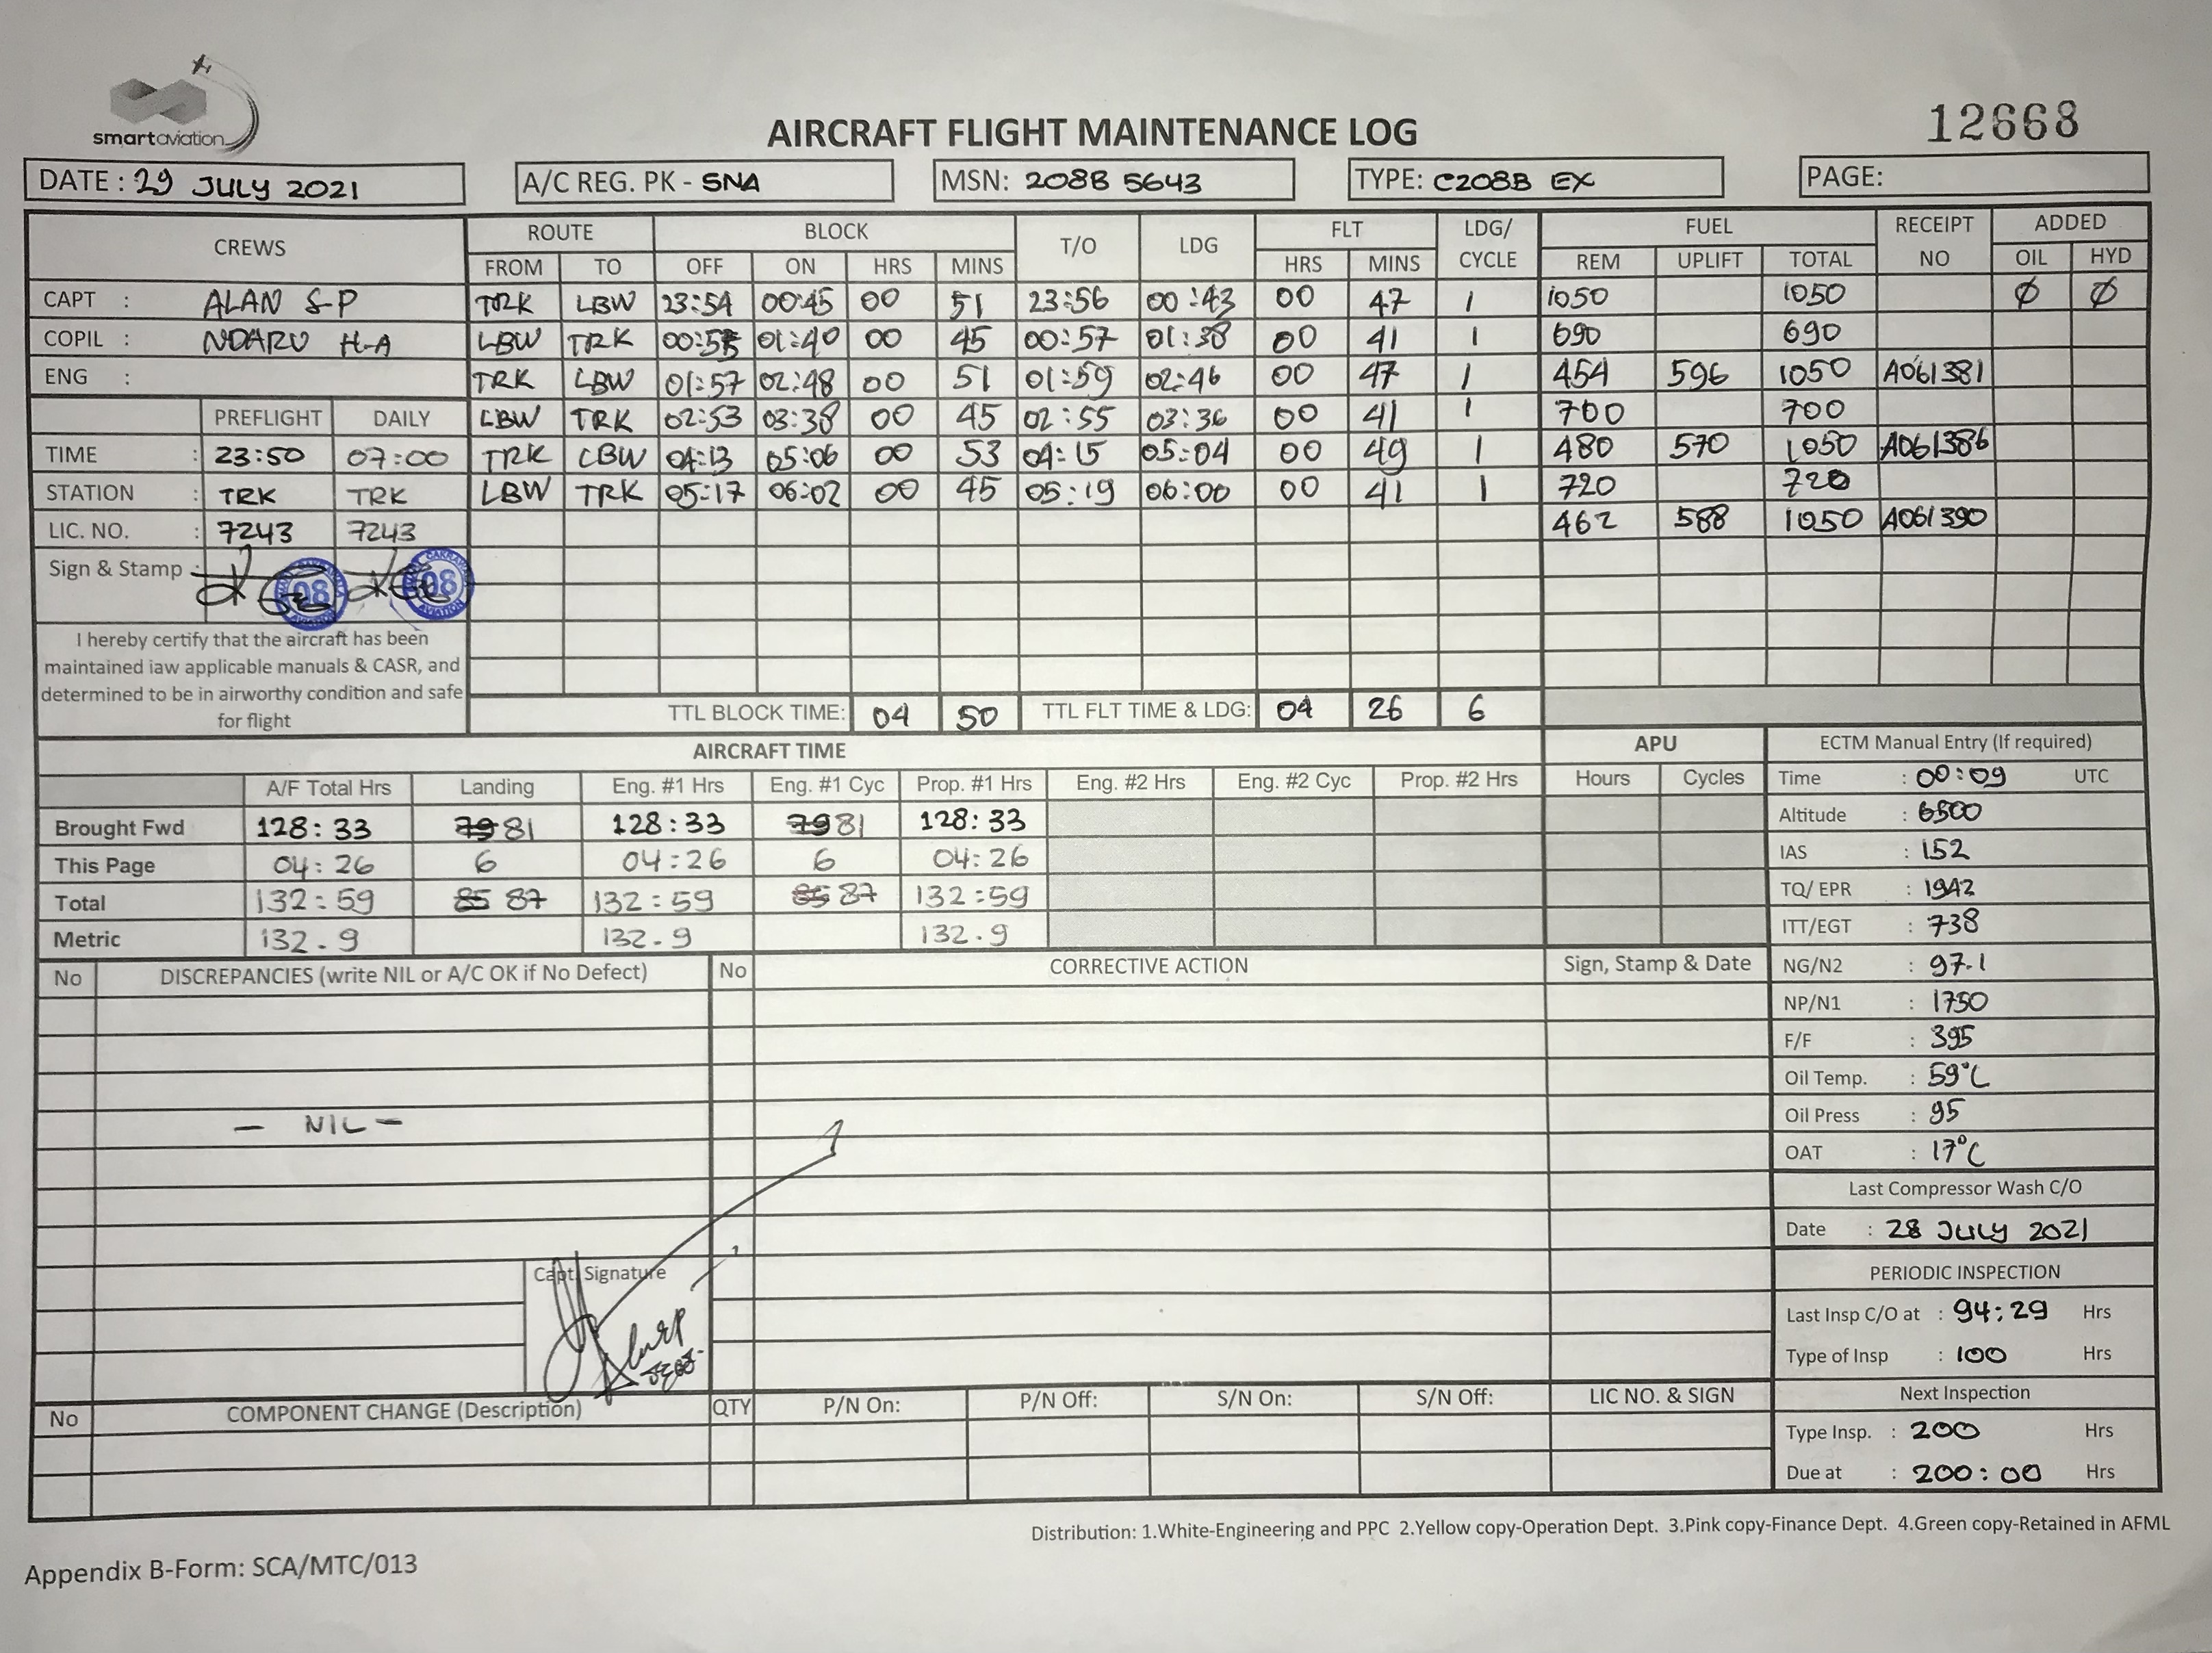 smartaviation
12668
AIRCRAFT FLIGHT MAINTENANCE LOG
DATE : 29 JULY 2021 A/C REG. PK - SNA MSN: 208B 5643 TYPE: C208B EX PAGE:
CREWS ROUTE BLOCK T/O LDG FLT LDG/ CYCLE FUEL RECEIPT NO ADDED
FROM TO OFF ON HRS MINS HRS MINS REM UPLIFT TOTAL OIL HYD
CAPT : ALAN S-P TRK LBW 23:54 00:45 00 51 23:56 00:43 00 47 1 1050 1050 Ø Ø
COPIL : NDARU H-A LBW TRK 00:55 01:40 00 45 00:57 01:38 00 41 1 690 690
ENG : TRK LBW 01:57 02:48 00 51 01:59 02:46 00 47 1 454 596 1050 A061381
PREFLIGHT DAILY LBW TRK 02:53 03:38 00 45 02:55 03:36 00 41 1 700 700
TIME : 23:50 07:00 TRK LBW 04:13 05:06 00 53 04:15 05:04 00 49 1 480 570 1050 A061386
STATION : TRK TRK LBW TRK 05:17 06:02 00 45 05:19 06:00 00 41 1 720 720
LIC. NO. : 7243 7243 462 588 1050 A061390
Sign & Stamp : 08 AVIATION 08 AVIATION
I hereby certify that the aircraft has been
maintained iaw applicable manuals & CASR, and
determined to be in airworthy condition and safe
for flight
TTL BLOCK TIME: 04 50 TTL FLT TIME & LDG: 04 26 6
AIRCRAFT TIME APU ECTM Manual Entry (If required)
A/F Total Hrs Landing Eng. #1 Hrs Eng. #1 Cyc Prop. #1 Hrs Eng. #2 Hrs Eng. #2 Cyc Prop. #2 Hrs Hours Cycles Time : 00:09 UTC
Brought Fwd 128:33 79 81 128:33 79 81 128:33 Altitude : 6500
This Page 04:26 6 04:26 6 04:26 IAS : 152
Total 132:59 85 87 132:59 85 87 132:59 TQ/ EPR : 1942
Metric 132.9 132.9 132.9 ITT/EGT : 738
No DISCREPANCIES (write NIL or A/C OK if No Defect) No CORRECTIVE ACTION Sign, Stamp & Date NG/N2 : 97.1
NP/N1 : 1750
F/F : 395
Oil Temp. : 59°C
— NIL — Oil Press : 95
OAT : 17°C
Last Compressor Wash C/O
Date : 28 JULY 2021
Capt. Signature PERIODIC INSPECTION
Last Insp C/O at : 94:29 Hrs
Type of Insp : 100 Hrs
No COMPONENT CHANGE (Description) QTY P/N On: P/N Off: S/N On: S/N Off: LIC NO. & SIGN Next Inspection
Type Insp. : 200 Hrs
Due at : 200:00 Hrs
Distribution: 1.White-Engineering and PPC 2.Yellow copy-Operation Dept. 3.Pink copy-Finance Dept. 4.Green copy-Retained in AFML
Appendix B-Form: SCA/MTC/013